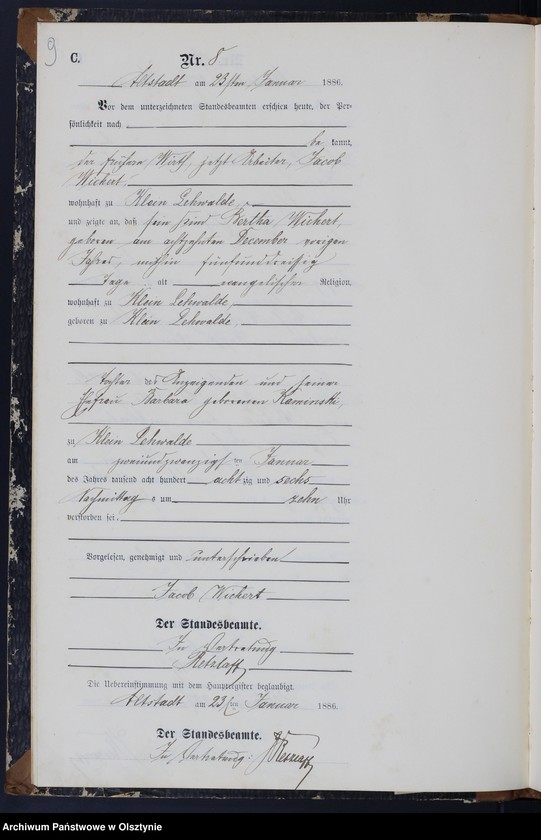 9
C.
Nr. 8
Altstadt am 23sten Januar 1886.
Vor dem unterzeichneten Standesbeamten erschien heute, der Per-
sönlichkeit nach
be kannt,
der frühere Wirth, jetzt Arbeiter, Jacob
Wichert
wohnhaft zu Klein Lehwalde,
und zeigte an, daß sein Kind Bertha Wichert,
geboren am achtzehnten December vorigen
Jahres, mithin fünfunddreissig
Tage alt evangelischer Religion,
wohnhaft zu Klein Lehwalde,
geboren zu Klein Lehwalde,
Tochter des Anzeigenden und seiner
Ehefrau Barbara geborenen Kaminski,
zu Klein Lehwalde
am zweiundzwanzigsten Januar
des Jahres tausend acht hundert achtzig und sechs
Nachmittags um zehn Uhr
verstorben sei.
Vorgelesen, genehmigt und unterschrieben
Jacob Wichert
Der Standesbeamte.
In Vertretung
Retzlaff
Die Uebereinstimmung mit dem Hauptregister beglaubigt.
Altstadt am 23sten Januar 1886.
Der Standesbeamte.
In Vertretung: Retzlaff
Archiwum Państwowe w Olsztynie